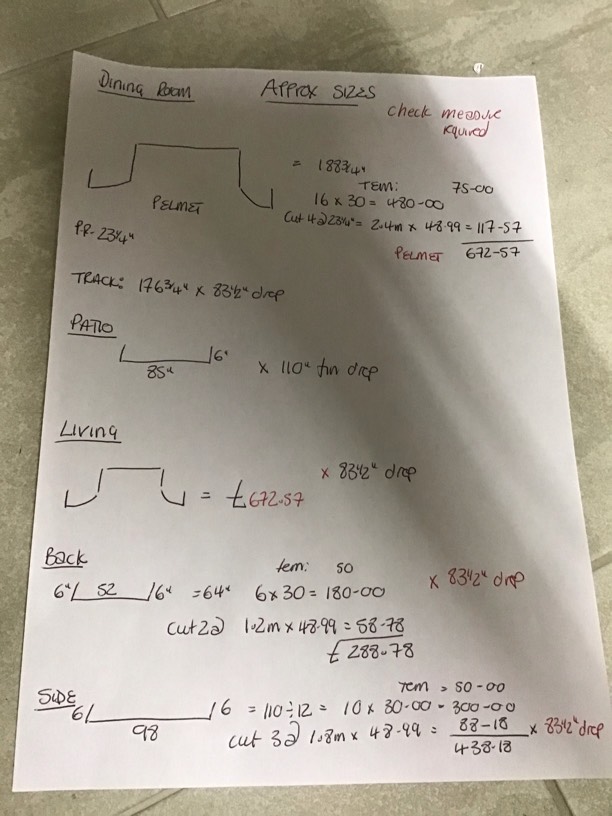 Dining Room
APPROX SIZES
check measure
rquired
= 188 3/4"
TEM: 75-00
16 x 30 = 480-00
PELMET
Cut 4@23 1/4" = 2.4m x 48.99 = 117-57
PR- 23 1/4"
PELMET 672-57
TRACK: 176 3/4" x 83 1/2" drop
PATIO
6"
85" x 110" fin drop
Living
x 83 1/2" drop
= £672.57
Back
tem: 50
6" 52 6" = 64" 6 x 30 = 180-00 x 83 1/2" drop
cut 2@ 1.2m x 48.99 = 58.78
£288.78
SIDE
Tem = 50-00
6 98 6 = 110 ÷ 12 = 10 x 30-00 = 300-00
cut 3@ 1.8m x 48.99 = 88-18 x 83 1/2" drop
438.18